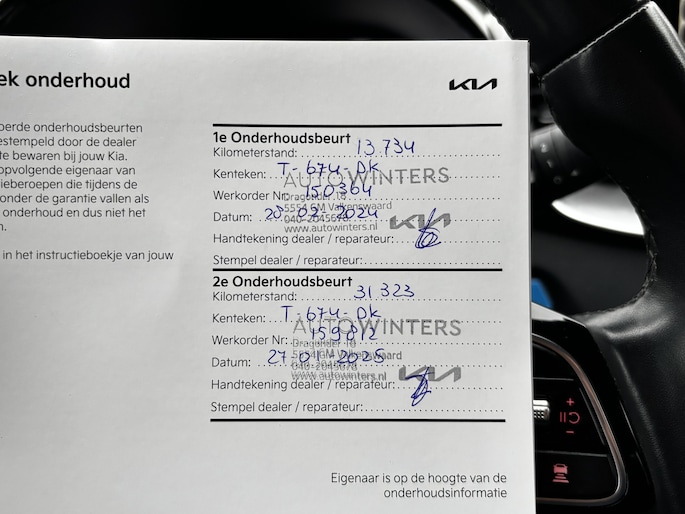 ek onderhoud
KIA
oerde onderhoudsbeurten
estempeld door de dealer
te bewaren bij jouw Kia.
opvolgende eigenaar van
ieberoepen die tijdens de
onder de garantie vallen als
onderhoud en dus niet het
n.
in het instructieboekje van jouw
1e Onderhoudsbeurt
Kilometerstand: 13.734
Kenteken: T-674-DK
AUTOWINTERS
Werkorder Nr: 150364
5554 GM Valkenswaard
Datum: 20-02-2024
KIA
www.autowinters.nl
Handtekening dealer / reparateur:
Stempel dealer / reparateur:
2e Onderhoudsbeurt
Kilometerstand: 31323
Kenteken: T-674-DK
AUTOWINTERS
Werkorder Nr: 159812
Datum: 27-01-2025
www.autowinters.nl
KIA
Handtekening dealer / reparateur:
Stempel dealer / reparateur:
Eigenaar is op de hoogte van de
onderhoudsinformatie